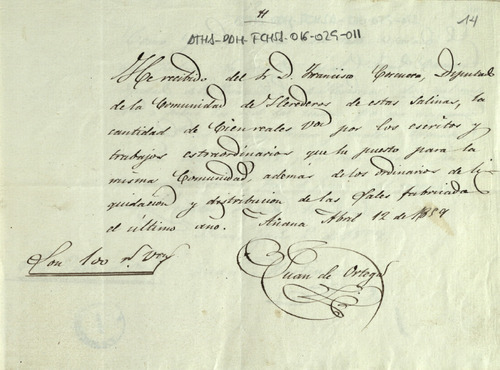 14
ATHA-DAH-FCHSA-016-029-011
He recibido del Sr. D. Francisco Diputado
de la Comunidad de Herederos de estas Salinas, la
cantidad de Cien reales Von por los escritos y
trabajos estraordinarios que he puesto para la
misma Comunidad ademas de los ordinarios de li-
quidacion y distribucion de las Sales fabricadas
el ultimo año. Añana Abril 12 de 1859
Son 100 rs. Von
Juan de Ortega